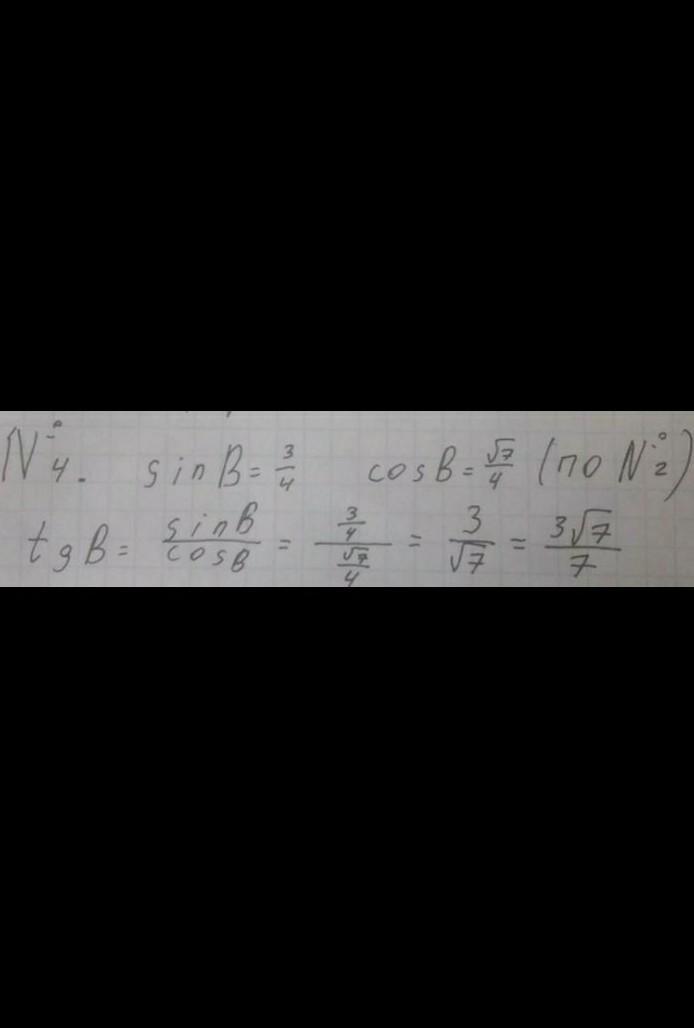 №4. sinB = 3/4 cosB = √7/4 (по №2)
tgB = sinB/cosB = (3/4)/(√7/4) = 3/√7 = 3√7/7